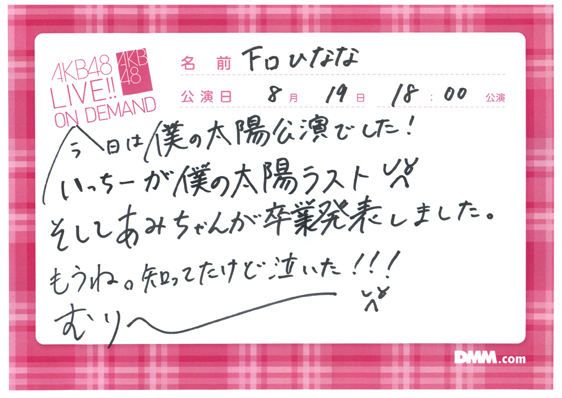 AKB48
LIVE!!
ON DEMAND
AKB
48
名 前 下口ひなな
公演日 8月 19日 18:00 公演
今日は僕の太陽公演でした!
いっちーが僕の太陽ラスト
そしてあみちゃんが卒業発表しました。
もうね。知ってたけど泣いた!!!
むりー
DMM.com